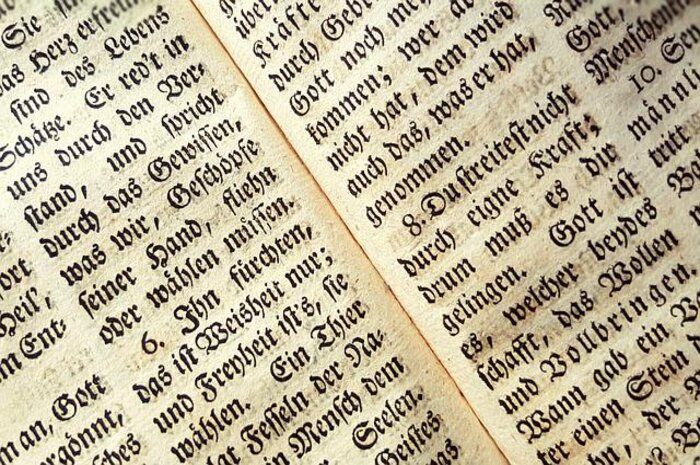 Sie
das Herz erfreuen
sind des Lebens
Schätze. Er red't in
uns durch den Ver-
stand, und spricht
durch das Gewissen,
was wir, Geschöpfe
seiner Hand, fliehn
oder wählen müssen.
6. Ihn fürchten,
das ist Weisheit nur;
und Freyheit ist's, sie
wählen. Ein Thier
Fesseln der Na-
Mensch dem
Seelen.
Geistes
das
ort
Heil,
m Ent-
man, Gott
rgönnt,
ches
über
Kräfte
durch Gebe
Gott noch meh
kommen; wer da
nicht hat, dem wird
auch das, was er hat,
genommen.
8. Du streitest nicht
durch eigne Kraft;
drum muß es dir
gelingen. Gott ist
es, welcher beydes
schafft, das Wollen
und Vollbringen.
Wann gab ein V
ter einen Stein,
der
Gott,
Menschen
10. Ge
männl
tritt